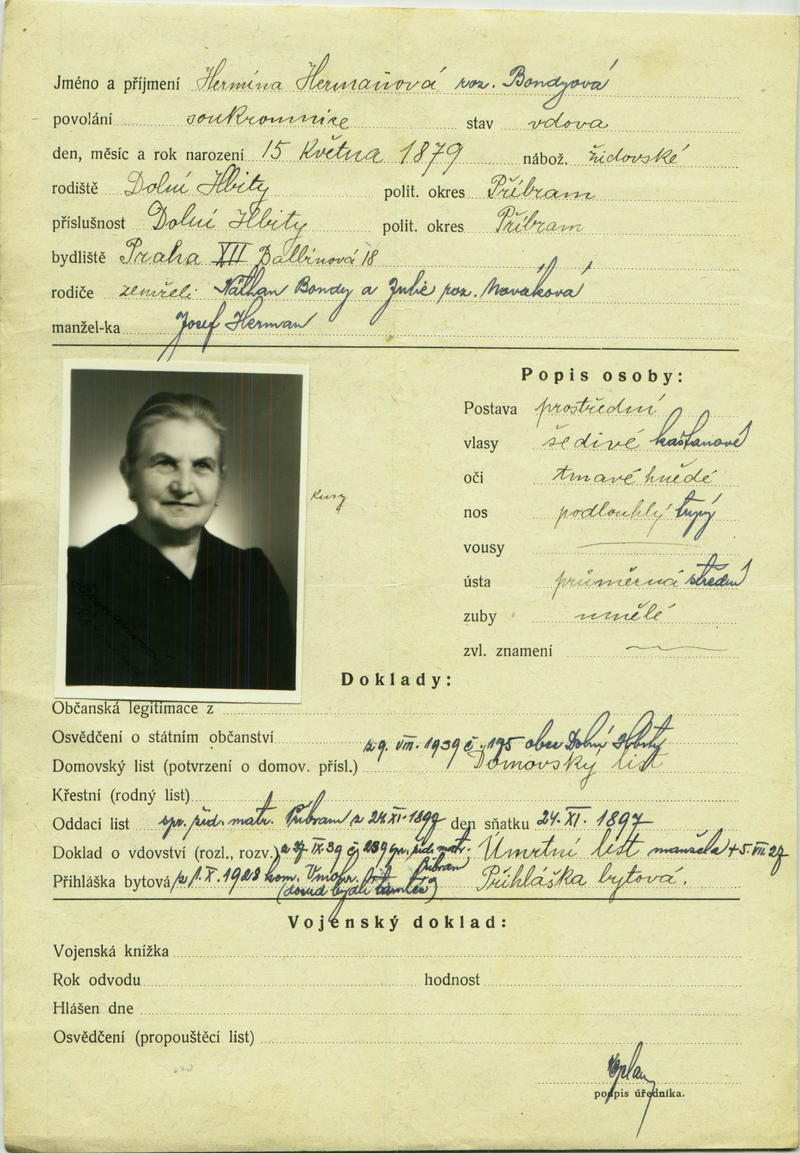 Jméno a příjmení Hermína Hermanová roz. Bondyová
povolání soukromnice stav vdova
den, měsíc a rok narození 15 Května 1879 nábož. židovské
rodiště Dolní Hbity polit. okres Příbram
příslušnost Dolní Hbity polit. okres Příbram
bydliště Praha XII Balbínova 18
rodiče zemřeli Náthan Bondy a Julie roz. Nováková
manžel-ka Josef Herman
Popis osoby:
Postava prostřední
vlasy šedivé kaštanové
oči tmavé hnědé
nos podlouhlý tupý
vousy
ústa průměrná střední
zuby umělé
zvl. znamení
Doklady:
Občanská legitimace z
Osvědčení o státním občanství
z 9. VIII. 1939 č. 195 obec Dolní Hbity
Domovský list (potvrzení o domov. přísl.) Domovský list
Křestní (rodný list)
Oddací list spr. žid. matr. Příbram z 24 XI. 1897 den sňatku 24. XI. 1897
Doklad o vdovství (rozl., rozv.) IX. 39 č. 239 spr. žid. matr. Příbram Úmrtní list manžela + 5. VIII 27
Přihláška bytová z 1. X. 1928 kom. Přihláška bytová.
(dosud bydlí tamtéž)
Vojenský doklad:
Vojenská knížka
Rok odvodu hodnost
Hlášen dne
Osvědčení (propouštěcí list)
podpis úředníka.